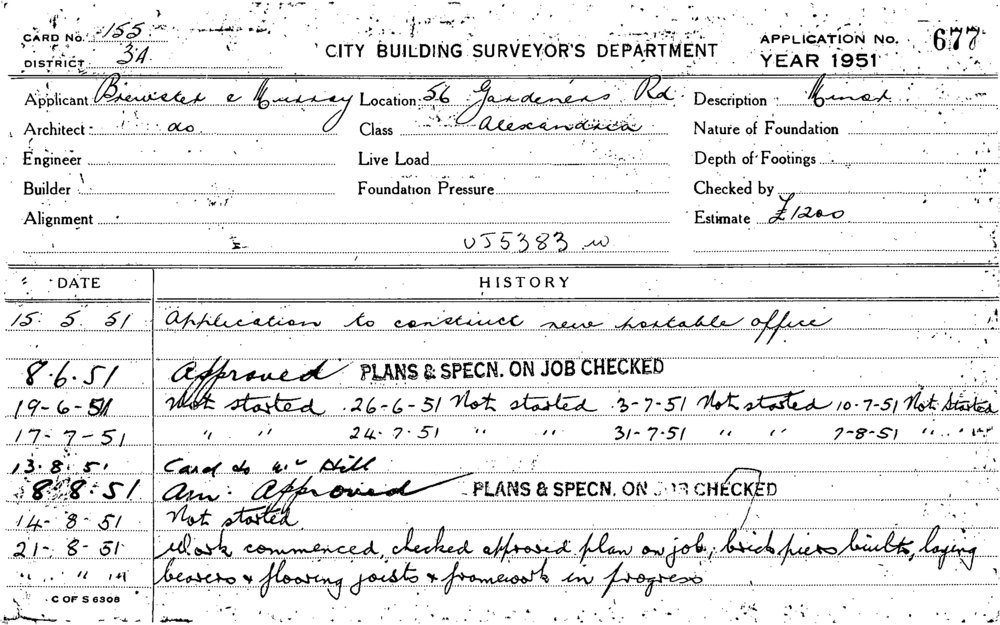 CARD NO. 155
DISTRICT 3A
CITY BUILDING SURVEYOR'S DEPARTMENT
APPLICATION NO. 677
YEAR 1951
Applicant Brewster & Murray Location 56 Gardeners Rd Description Minor
Architect do Class Alexandria Nature of Foundation
Engineer Live Load Depth of Footings
Builder Foundation Pressure Checked by
Alignment Estimate £1200
UJ5383
DATE HISTORY
15 5 51 Application to construct new portable office
8.6.51 Approved PLANS & SPECN. ON JOB CHECKED
19-6-51 Not started 26-6-51 Not started 3-7-51 Not started 10-7-51 Not started
17-7-51 " " 24.7.51 " " 31-7-51 " " 7-8-51 " "
13.8.51 Card to Mr Hill
8 8.51 Am. Approved PLANS & SPECN. ON JOB CHECKED
14-8-51 Not started
21-8-51 Work commenced, checked approved plan on job, brick piers built, laying
" " " bearers & flooring joists & framework in progress
C OF S 6308